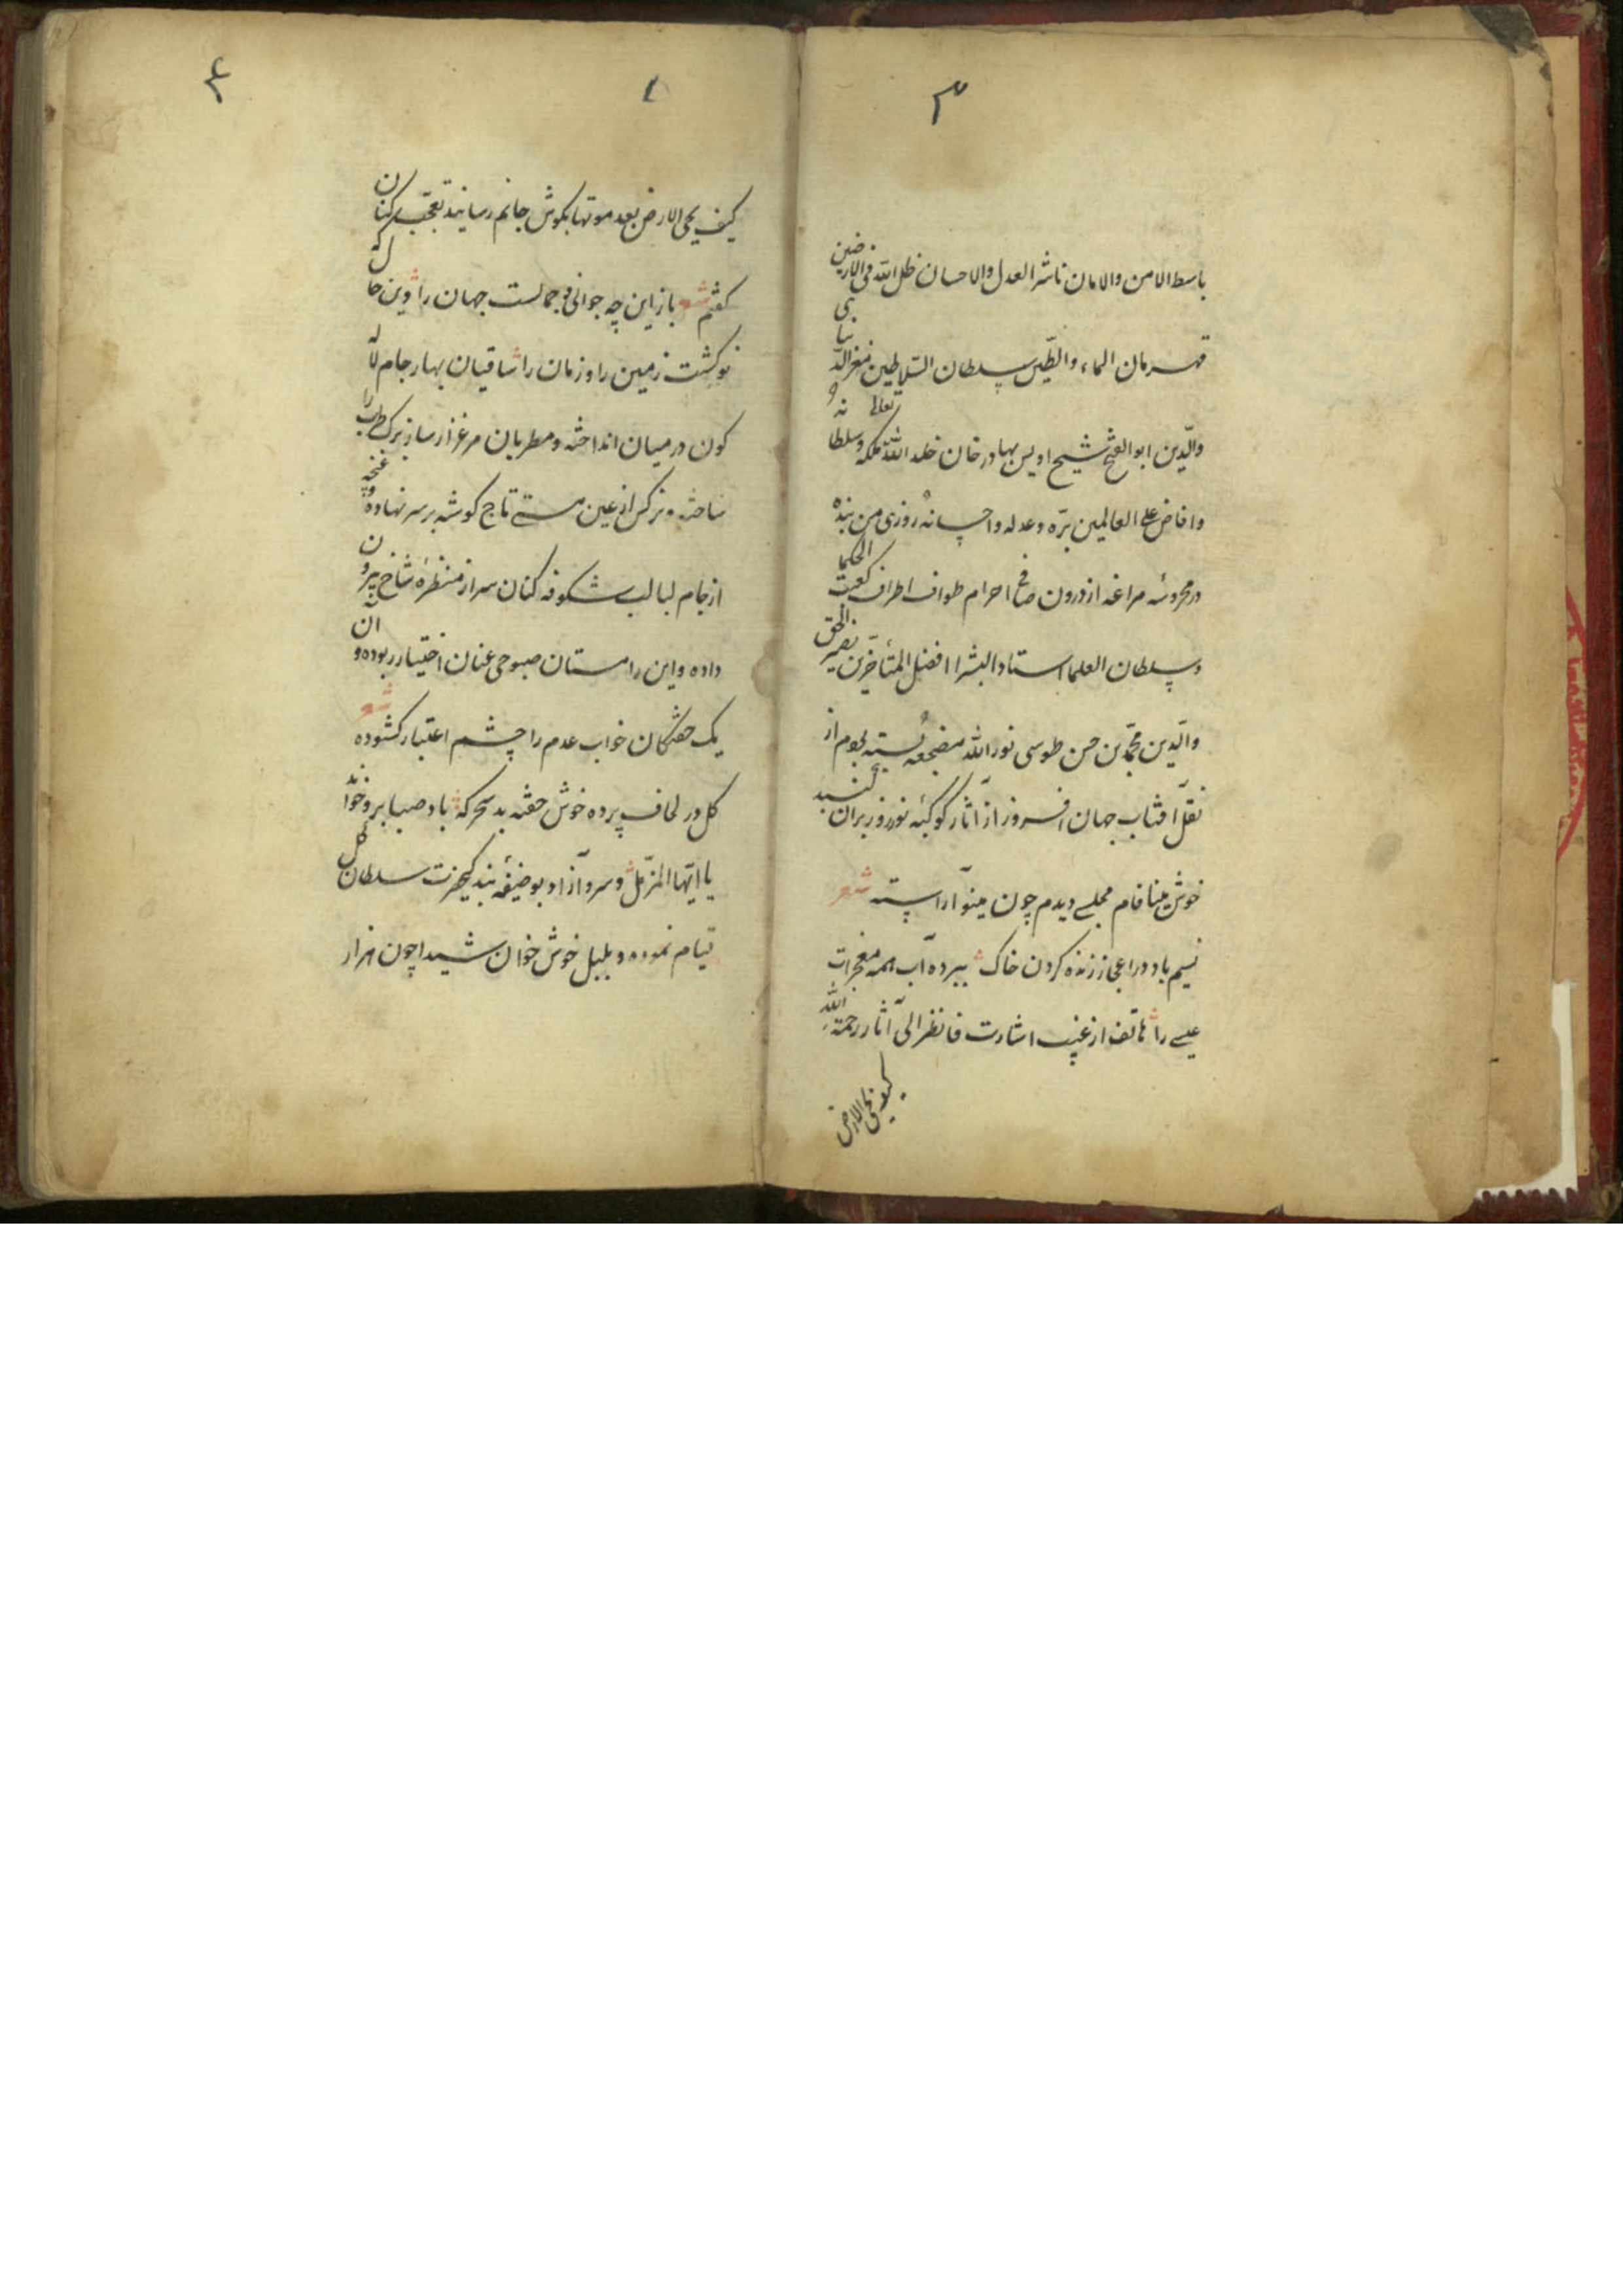 ۳
باسط الامن والامان ناشر العدل والاحسان ظل الله فی الارضین
قهرمان الماء والطین سلطان السلاطین معز الدنیا
والدین ابوالفتح شیخ اویس بهادر خان خلد الله تعالی ملکه وسلطانه
وافاض علی العالمین بره وعدله واحسانه روزی من بنده
در محروسه مراغه از درون صافی احرام طواف اطراف کعبه الحکما
وسلطان العلما استاد البشر افضل المتأخرین نصیر الحق
والدین محمد بن حسن طوسی نور الله مضجعه بسته بودم از
نقل آفتاب جهان افروز از آثار کوکبه نوروز بران کنبد
خوش مینا فام مجلسی دیدم چون مینو آراسته شعر
نسیم باد در اعجاز زنده کردن خاک ببرده آب همه معجزات
عیسی را هاتف از غیب اشارت فانظر الی آثار رحمة الله
کیف یحیی الارض
۴
کیف یحیی الارض بعد موتها بکوش جانم رسانید تعجب کنان
کفتم شعر باز این چه جوانی و جمالست جهان را وین حال که
نو کشت زمین را و زمان را ساقیان بهار جام لاله
کون در میان انداخته و مطربان مرغزار ساز برک طرب را
ساخته و نرکس از عین مستی تاج کوشه بر سر نهاده و غنچه
از جام لبالب شکوفه کنان سر از منظره شاخ بیرون
داده و این را مستان صبوحی عنان اختیار ربوده و آن
یک خفتکان خواب عدم را چشم اعتبار کشوده شعر
کل در لحاف پرده خوش خفته بد سحرکه باد صبا برو خواند
یا ایها المزمل و سرو آزاد بوظیفه بندکی حضرت سلطان کل
قیام نموده و بلبل خوش خوان شیدا چون هزار